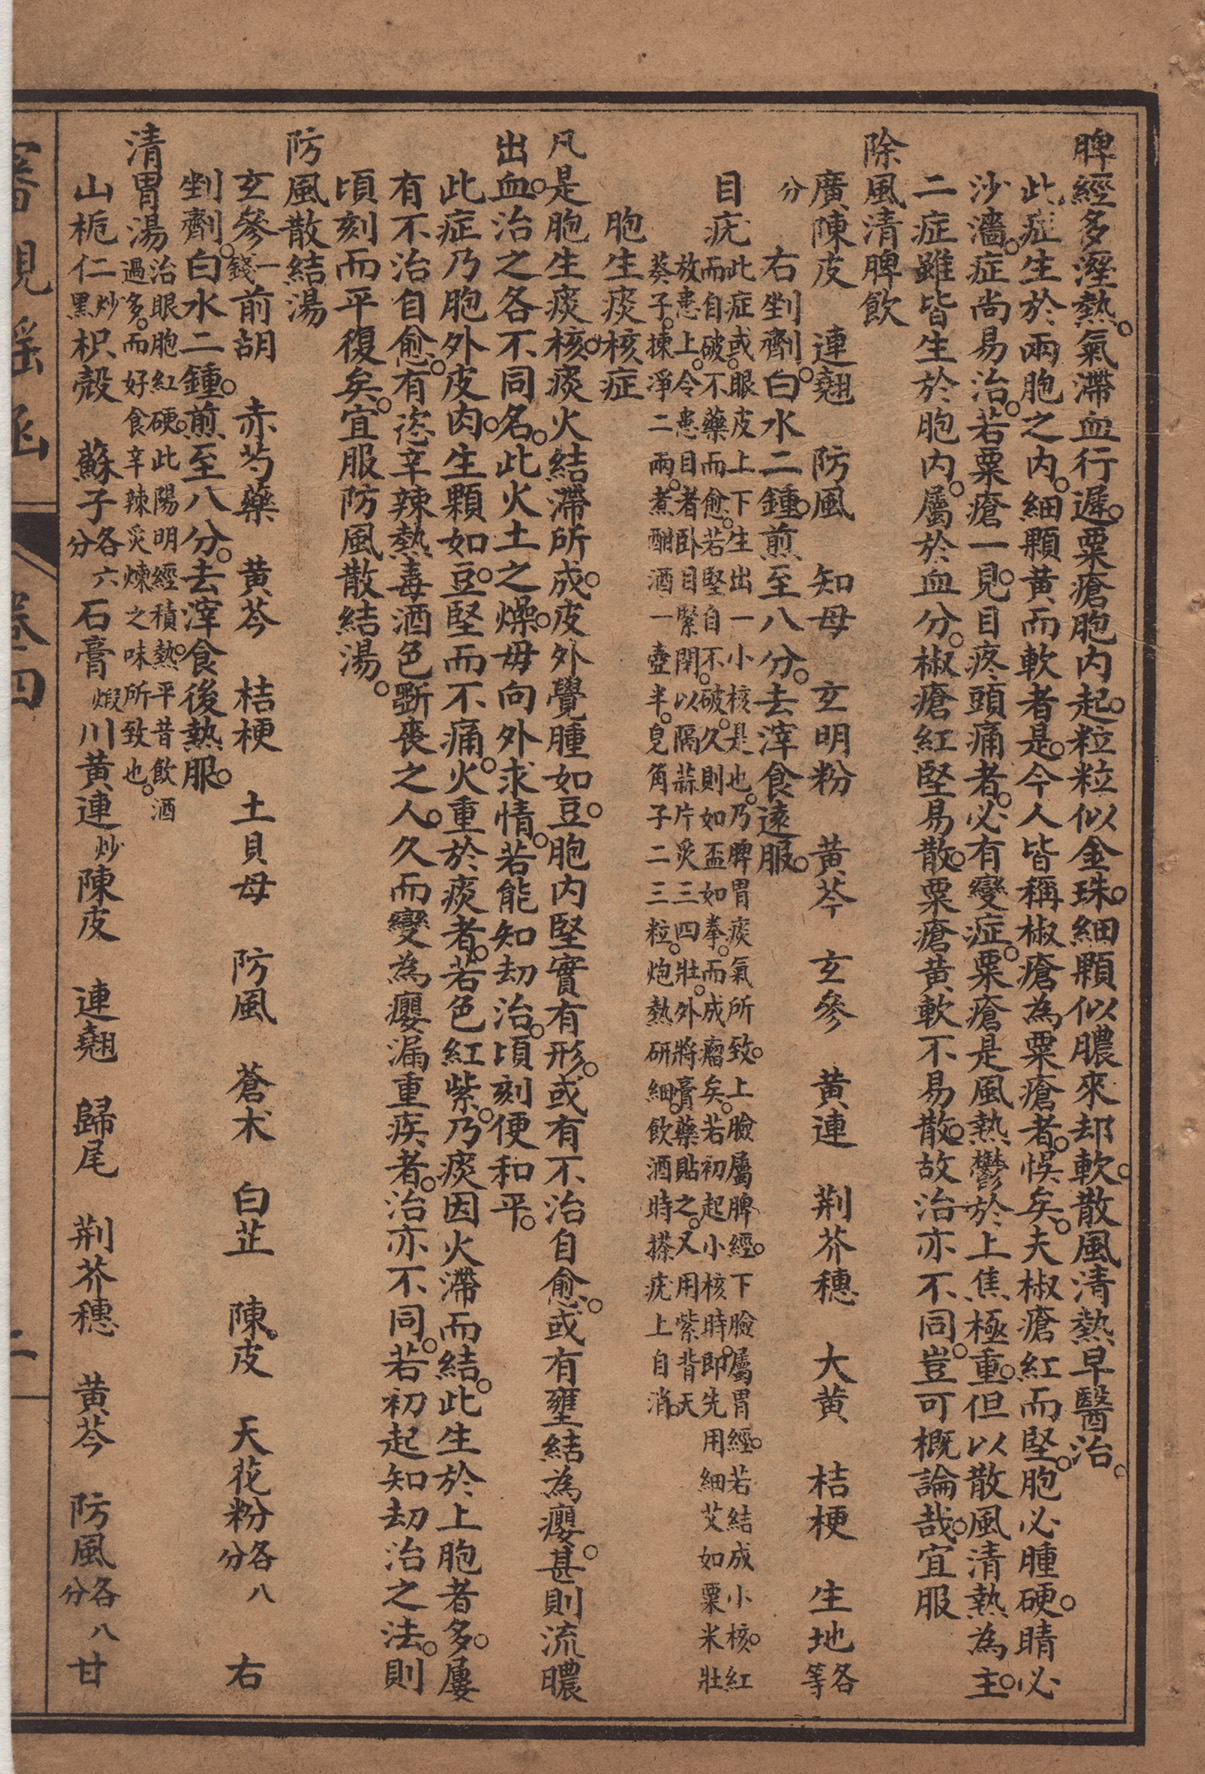 脾經多溼熱。氣滯血行遲。粟瘡胞內起。粒粒似金珠。細顆似膿來却軟。散風清熱早醫治。
此症生於兩胞之內。細顆黃而軟者是。今人皆稱椒瘡為粟瘡者。悞矣。夫椒瘡紅而堅。胞必腫硬。睛必
沙濇。症尚易治。若粟瘡一見。目疼頭痛者。必有變症。粟瘡是風熱鬱於上焦極重。但以散風清熱為主。
二症雖皆生於胞內。屬於血分。椒瘡紅堅易散。粟瘡黃軟不易散。故治亦不同。豈可概論哉。宜服
除風清脾飲
廣陳皮　連翹　防風　知母　玄明粉　黃芩　玄參　黃連　荆芥穗　大黃　桔梗　生地各等
分
右剉劑。白水二鍾。煎至八分。去滓食遠服。
目疣此症或眼皮上下生出一小核是也。乃脾胃痰氣所致。上臉屬脾經。下臉屬胃經。若結成小核。紅
而自破。不藥而愈。若堅自不破。久則如盃如拳。而成瘤矣。若初起小核時。即先用細艾如粟米壯
放患上。令患目者卧目緊閉。以隔蒜片炙三四壯。外將膏藥貼之。又用紫背天
葵子。揀淨二兩。煮酣酒一壺半。皂角子二三粒。炮熱研細。飲酒時搽疣上自消。
胞生痰核症
凡是胞生痰核。痰火結滯所成。皮外覺腫如豆。胞內堅實有形。或有不治自愈。或有壅結為癭。甚則流膿
出血。治之各不同名。此火土之燥。毋向外求情。若能知刧治。頃刻便和平。
此症乃胞外皮肉。生顆如豆。堅而不痛。火重於痰者。若色紅紫。乃痰因火滯而結。此生於上胞者多。屢
有不治自愈。有恣辛辣熱毒酒色斵喪之人。久而變為癭漏重疾者。治亦不同。若初起知刧治之法。則
頃刻而平復矣。宜服防風散結湯。
防風散結湯
玄參一錢前胡　赤芍藥　黃芩　桔梗　土貝母　防風　蒼朮　白芷　陳皮　天花粉各八分　右
剉劑。白水二鍾。煎至八分。去滓食後熱服。
清胃湯治眼胞紅硬。此陽明經積熱。平昔飲酒
過多。而好食辛辣炙煉之味所致也。
山梔仁炒黑枳殼　蘇子各六分石膏煅川黃連炒陳皮　連翹　歸尾　荆芥穗　黃芩　防風各八分甘
卷四
二